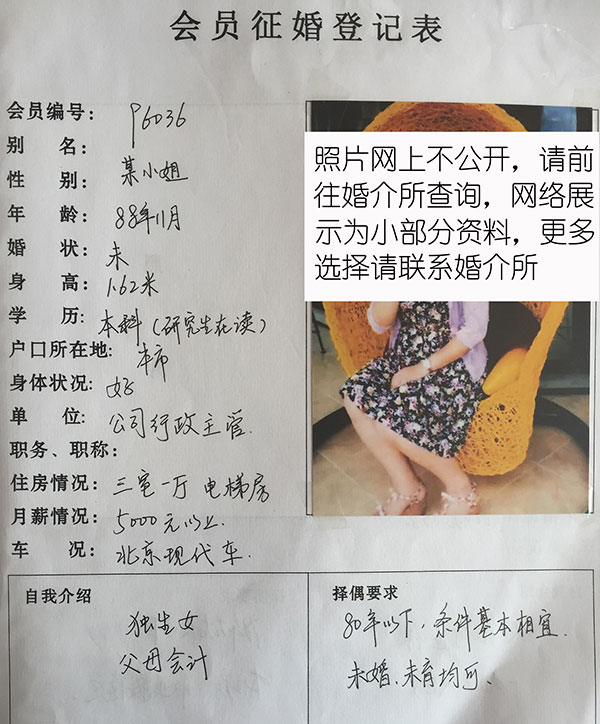 会员征婚登记表
会员编号: P6036
别 名:
性 别: 某小姐
年 龄: 88年11月
婚 状: 未
身 高: 1.62米
学 历: 本科(研究生在读)
户口所在地: 本市
身体状况: 好
单 位: 公司行政主管.
职务、职称:
住房情况: 三室一厅 电梯房
月薪情况: 5000元以上.
车 况: 北京现代车.
照片网上不公开，请前
往婚介所查询，网络展
示为小部分资料，更多
选择请联系婚介所
自我介绍
独生女
父母会计
择偶要求
80年以下，条件基本相宜.
未婚、未育均可.